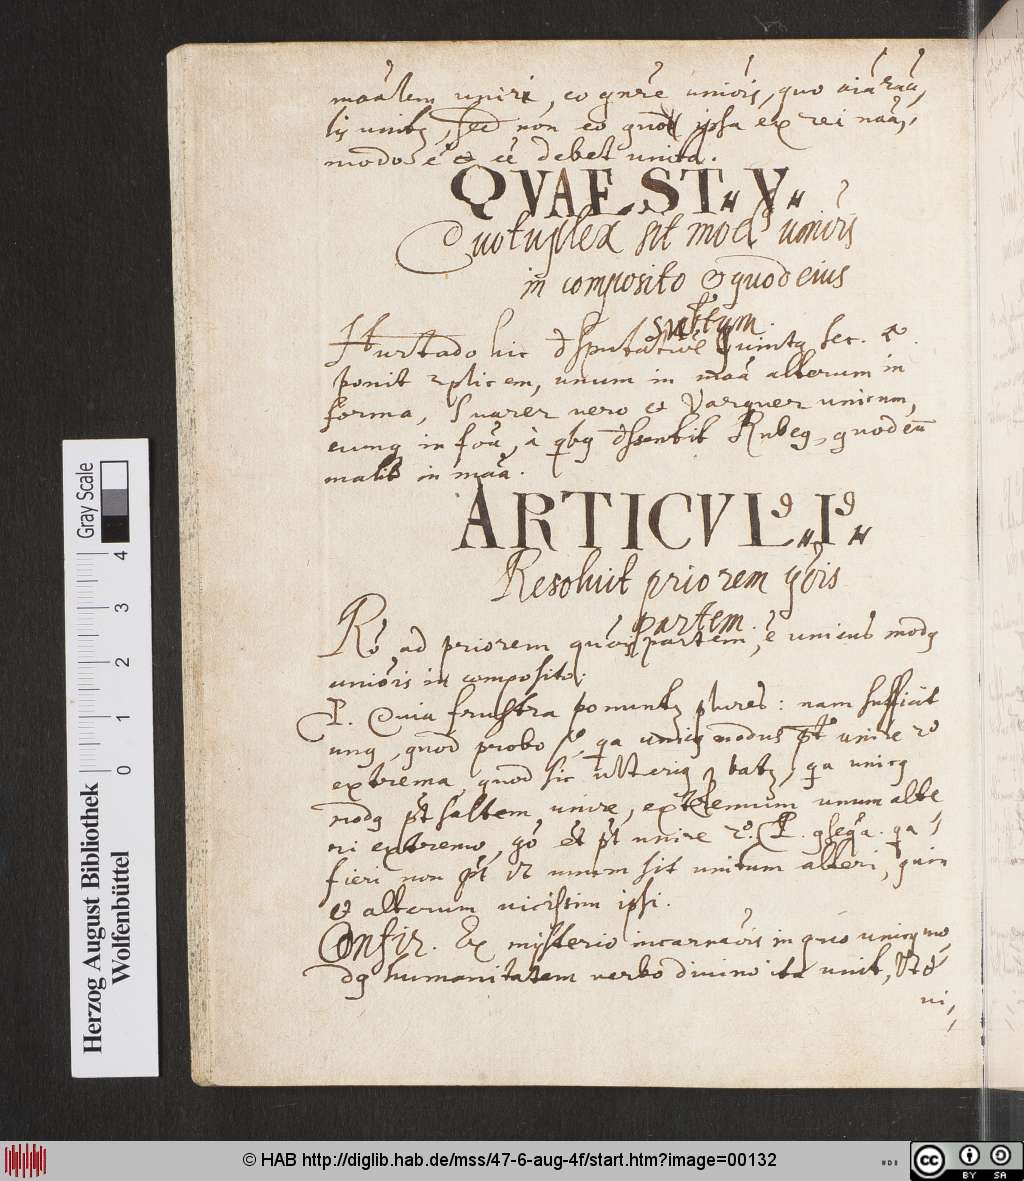 modo ẽ & eẽ debet unita.
QVAEST„ V„
Quotuplex sit modꝰ uniõis
in composito & quod eius
subtum.
Hurtado hic dsputatiõe quinta sec. 2ª.
ponit 2plicem, unum in maã alterum in
forma, Suarez vero & Vazquez unicum,
eumq in foũ, à qbq dssentit Rubeq, quod eũ
malit in maã.
ARTICVLꝰ„ Iꝰ„
Resoluit priorem qõis
partem.
Rº. ad priorem quõis partem, ẽ unicus modq
uniõis in composito.
P. Quia frustra ponuntq plures: nam sufficit
unq, quod probo sc, qa unicq modus pt unire 2º
extrema, quod sic ulteriq pbatq, qa unicq
modq pt saltem unire, extremum unum alte
ri extremo, gõ et pt unire 2º. P. gseqa. qa
fieri non pt ut unum sit unitum alteri, quin
& alterum vicissim ipsi.
Confir. Ex misterio incarnaõis in quo unicq mo
dq humanitatem verbo divino ita unit, Ut &
ui
Herzog August Bibliothek
Wolfenbüttel
Gray Scale
0 1 2 3 4
© HAB http://diglib.hab.de/mss/47-6-aug-4f/start.htm?image=00132
cc BY SA